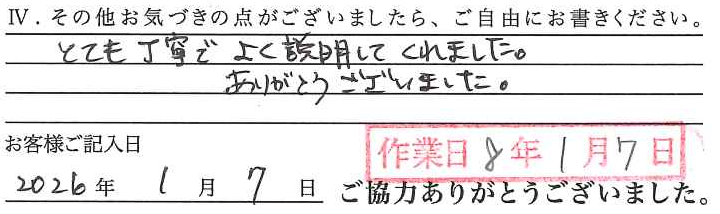 Ⅳ．その他お気づきの点がございましたら、ご自由にお書きください。
とても丁寧でよく説明してくれました。
ありがとうございました。
お客様ご記入日
作業日 8年1月7日
2026年1月7日 ご協力ありがとうございました。